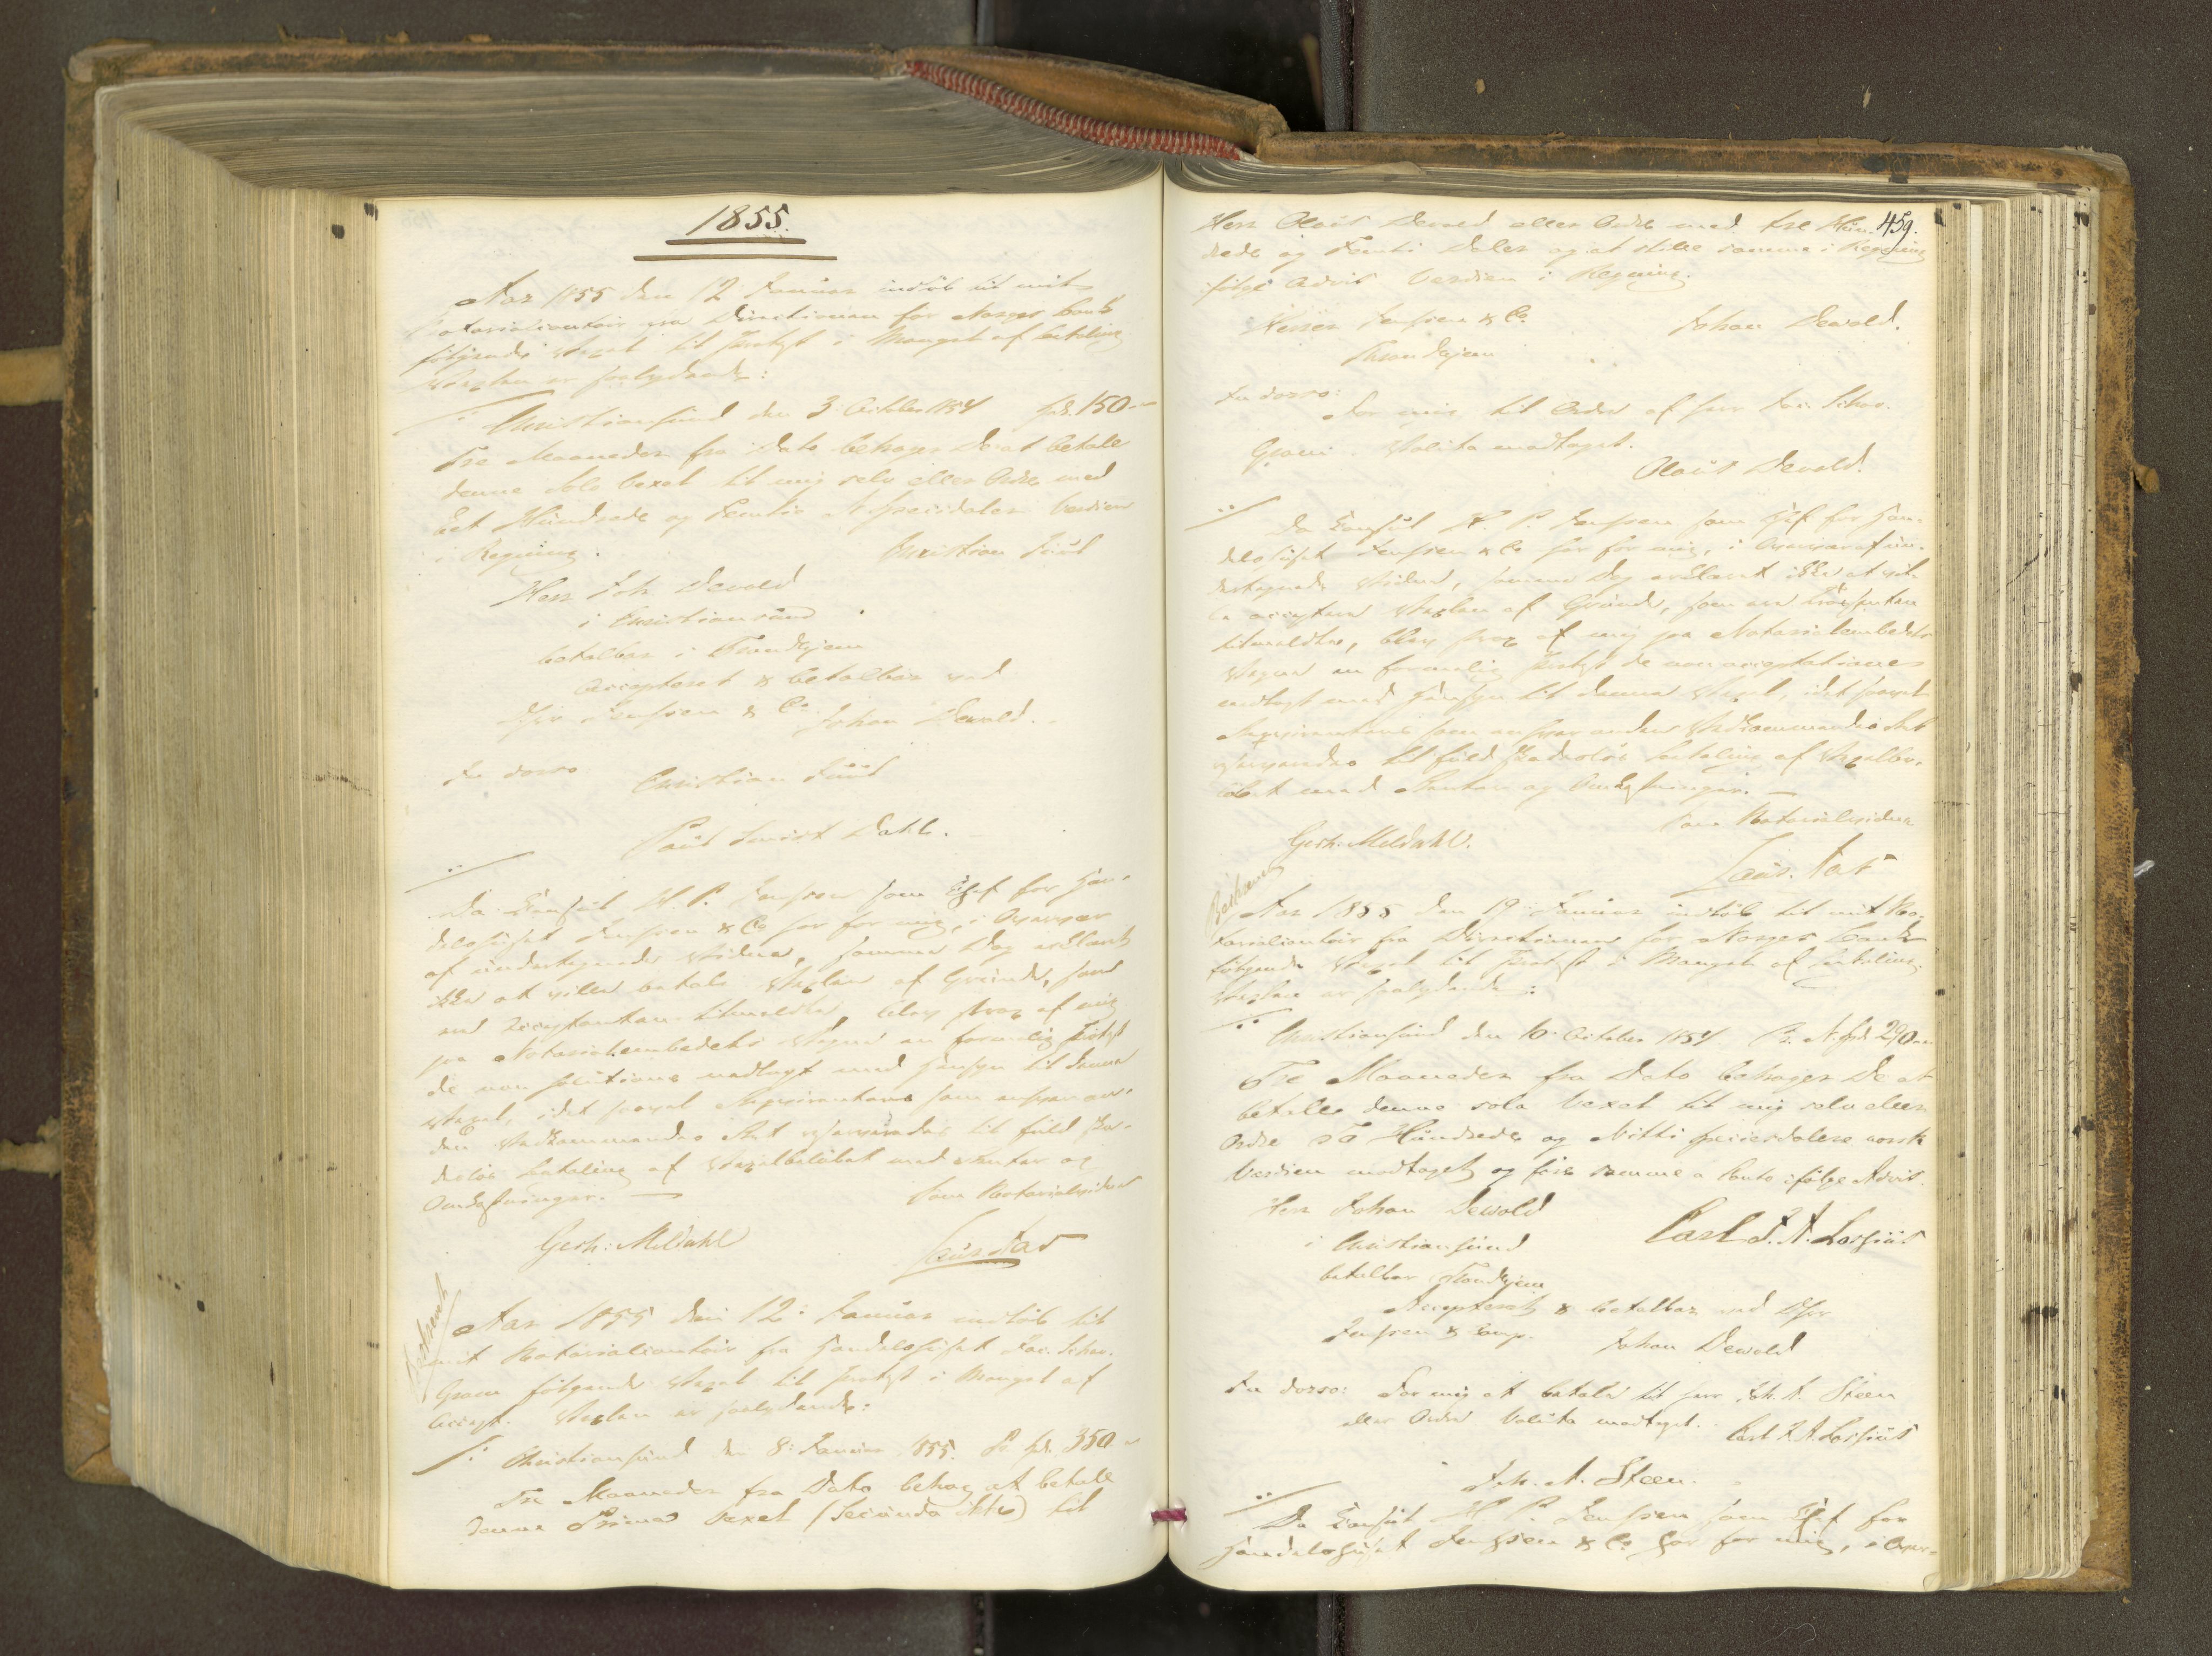 1855.
Aar 1855 den 12 Januar indløb til mit
Notarialcontoir fra Directionen for Norges Bank
følgende Vexel til Protest i Mangel af Betaling
Vexlen er saalydende:
Christianssund den 3 October 1854 Spd. 150
Tre Maaneder fra Dato behager De at betale
denne Sola Vexel til mig selv eller Ordre med
Eet Hundrede og Femtie N Speciedaler Verdien
i Regning. Christian Juul
Herr Joh Dewold
i Christianssund
betalbar i Trondhjem
Accepteret & betalbar ved
Hrr Jenssen & Co. Johan Dewold.
In dorso Christian Juul
Dahl.
Da Consul H. P. Jenssen som Chef for Han-
delshuset Jenssen & Co har for mig, i Overvær
af undertegnede Vidne, samme Dag erklæret
ikke at ville betale Vexlen af Grunde, som
ved Acceptanten tilmeldte, blev strax af mig
paa Notarialembedets Vegne en formelig Protest
de non solutione modtagt med Hensyn til denne
Vexel, idet saavel Acceptanten som enhver an-
den Vedkommendes Ret reserveredes til fuld ska-
desløs Betaling af Vexelbeløbet med Renter og
Omkostninger. Som Notarialvidne
Gerh: Meldahl
Aar 1855 den 12: Januar indløb til
mit Notarialcontoir fra Handelshuset Jac. Schav.
Gram følgende Vexel til Protest i Mangel af
Accept. Vexlen er saalydende:
Christianssund den 8: Januar 1855. Pr Spd. 350
Tre Maaneder fra Dato behag at betale
denne Prima Vexel (Secunda ikke) til
459.
Herr Olaus Dewold eller Ordre med tre Hun-
drede og Femti Daler og at stille samme i Regning
ifølge Advis Verdien i Regning.
Herrer Jenssen & Co. Johan Dewold.
Trondhjem
In dorso:
For mig til Ordre af Herr Jac. Schav.
Gram. Valuta modtaget.
Olaus Dewold.
Da Consul H. P. Jenssen som Chef for Han-
delshuset Jenssen & Co har for mig, i Overvær af un-
dertegnede Vidne, samme Dag erklæret ikke at vil-
le acceptere Vexlen af Grunde, som ere Trassenten
tilmeldte, blev strax af mig paa Notarialembedets
Vegne en formelig Protest de non acceptatione
modtagt med Hensyn til denne Vexel, idet saavel
som enhver anden Vedkommendes Ret
reserveredes til fuld skadesløs Betaling af Vexelbe-
løbet med Renter og Omkostninger.
Som Notarialvidne
Gerh: Meldahl.
Aar 1855 den 19: Januar indløb til mit No-
tarialcontoir fra Directionen for Norges Bank
følgende Vexel til Protest i Mangel af Betaling.
Vexlen er saalydende:
Christianssund den 10: October 1854 Pr. N. Spd. 290
Tre Maaneder fra Dato behager De at
betale denne sola Vexel til mig selv eller
Ordre To Hundrede og Nitti Speciesdalere norsk
Verdien modtaget og føre samme a Conto ifølge Advis.
Herr Johan Dewold
i Christianssund Carl F. A. Lossius
betalbar Trondhjem
Accepteret & betalbar ved Hrr
Jenssen & Comp. Johan Dewold
In dorso: For mig at betale til Herr Joh. A. Steen
eller Ordre Valuta modtaget. Carl F. A. Lossius
Joh. A. Steen.
Da Consul H P. Jenssen som Chef for
Handelshuset Jenssen & Co. har for mig, i Over-